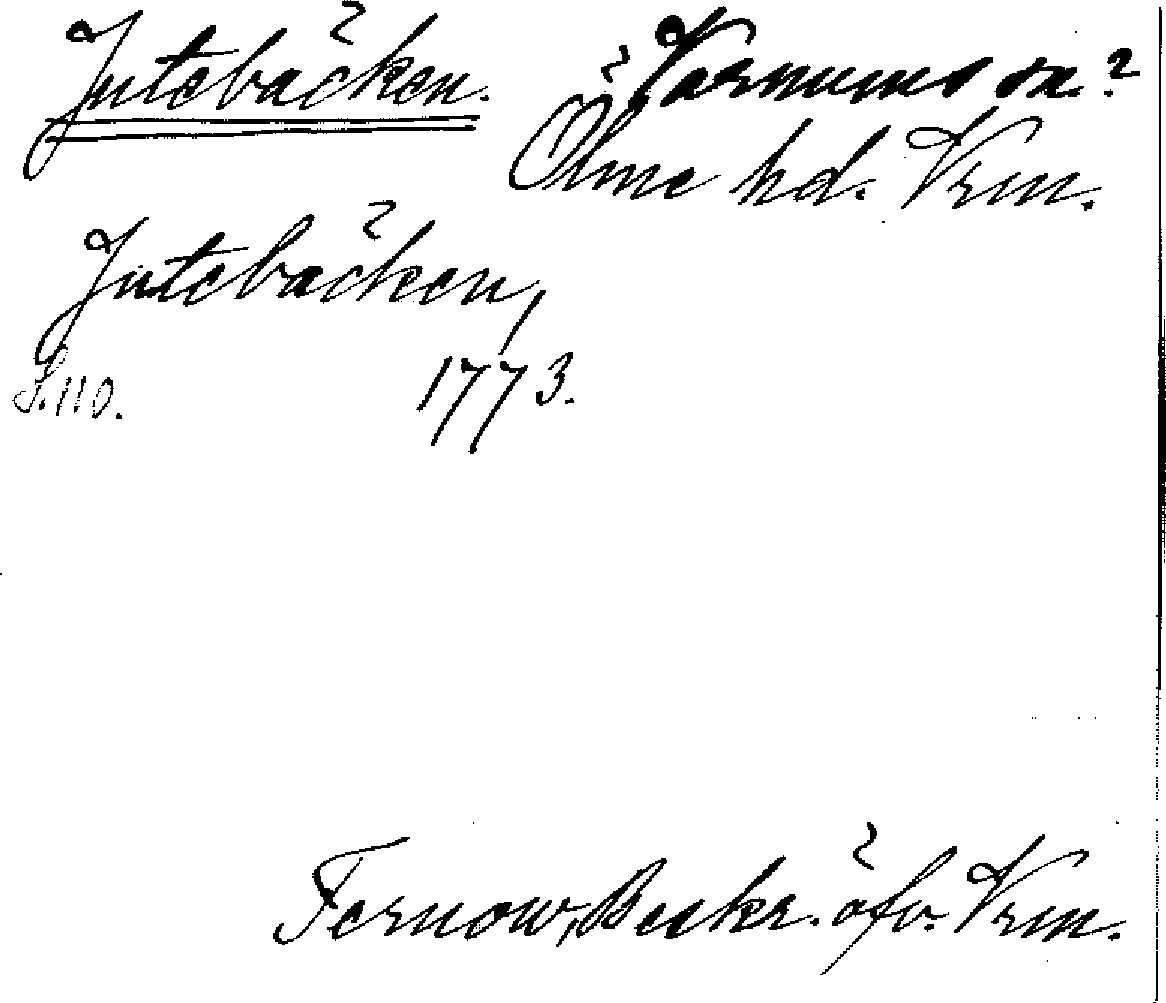 Jutebäcken. Varnums sn.?
Ölme hd. Vrm.
Jutebäcken,
S. 110. 1773.
Fernow, Beskr. öfv. Vrm.